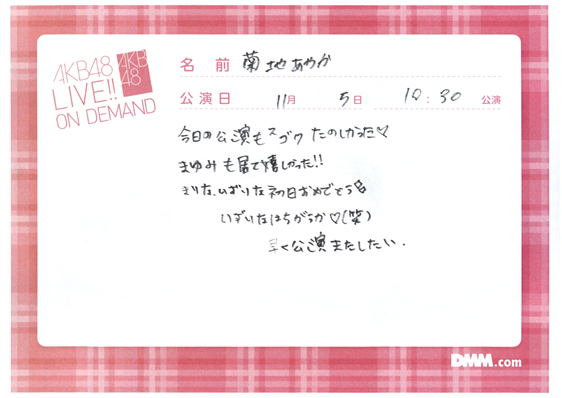 AKB48
LIVE!!
ON DEMAND
AKB
48
名 前 菊地あやか
公演日 11月 5日 18:30 公演
今日の公演もスゴクたのしかった♡
まゆみも居て嬉しかった!!
きりな、いずりな初日おめでとう
いずりなはちがうか♡(笑)
早く公演またしたい.
DMM.com